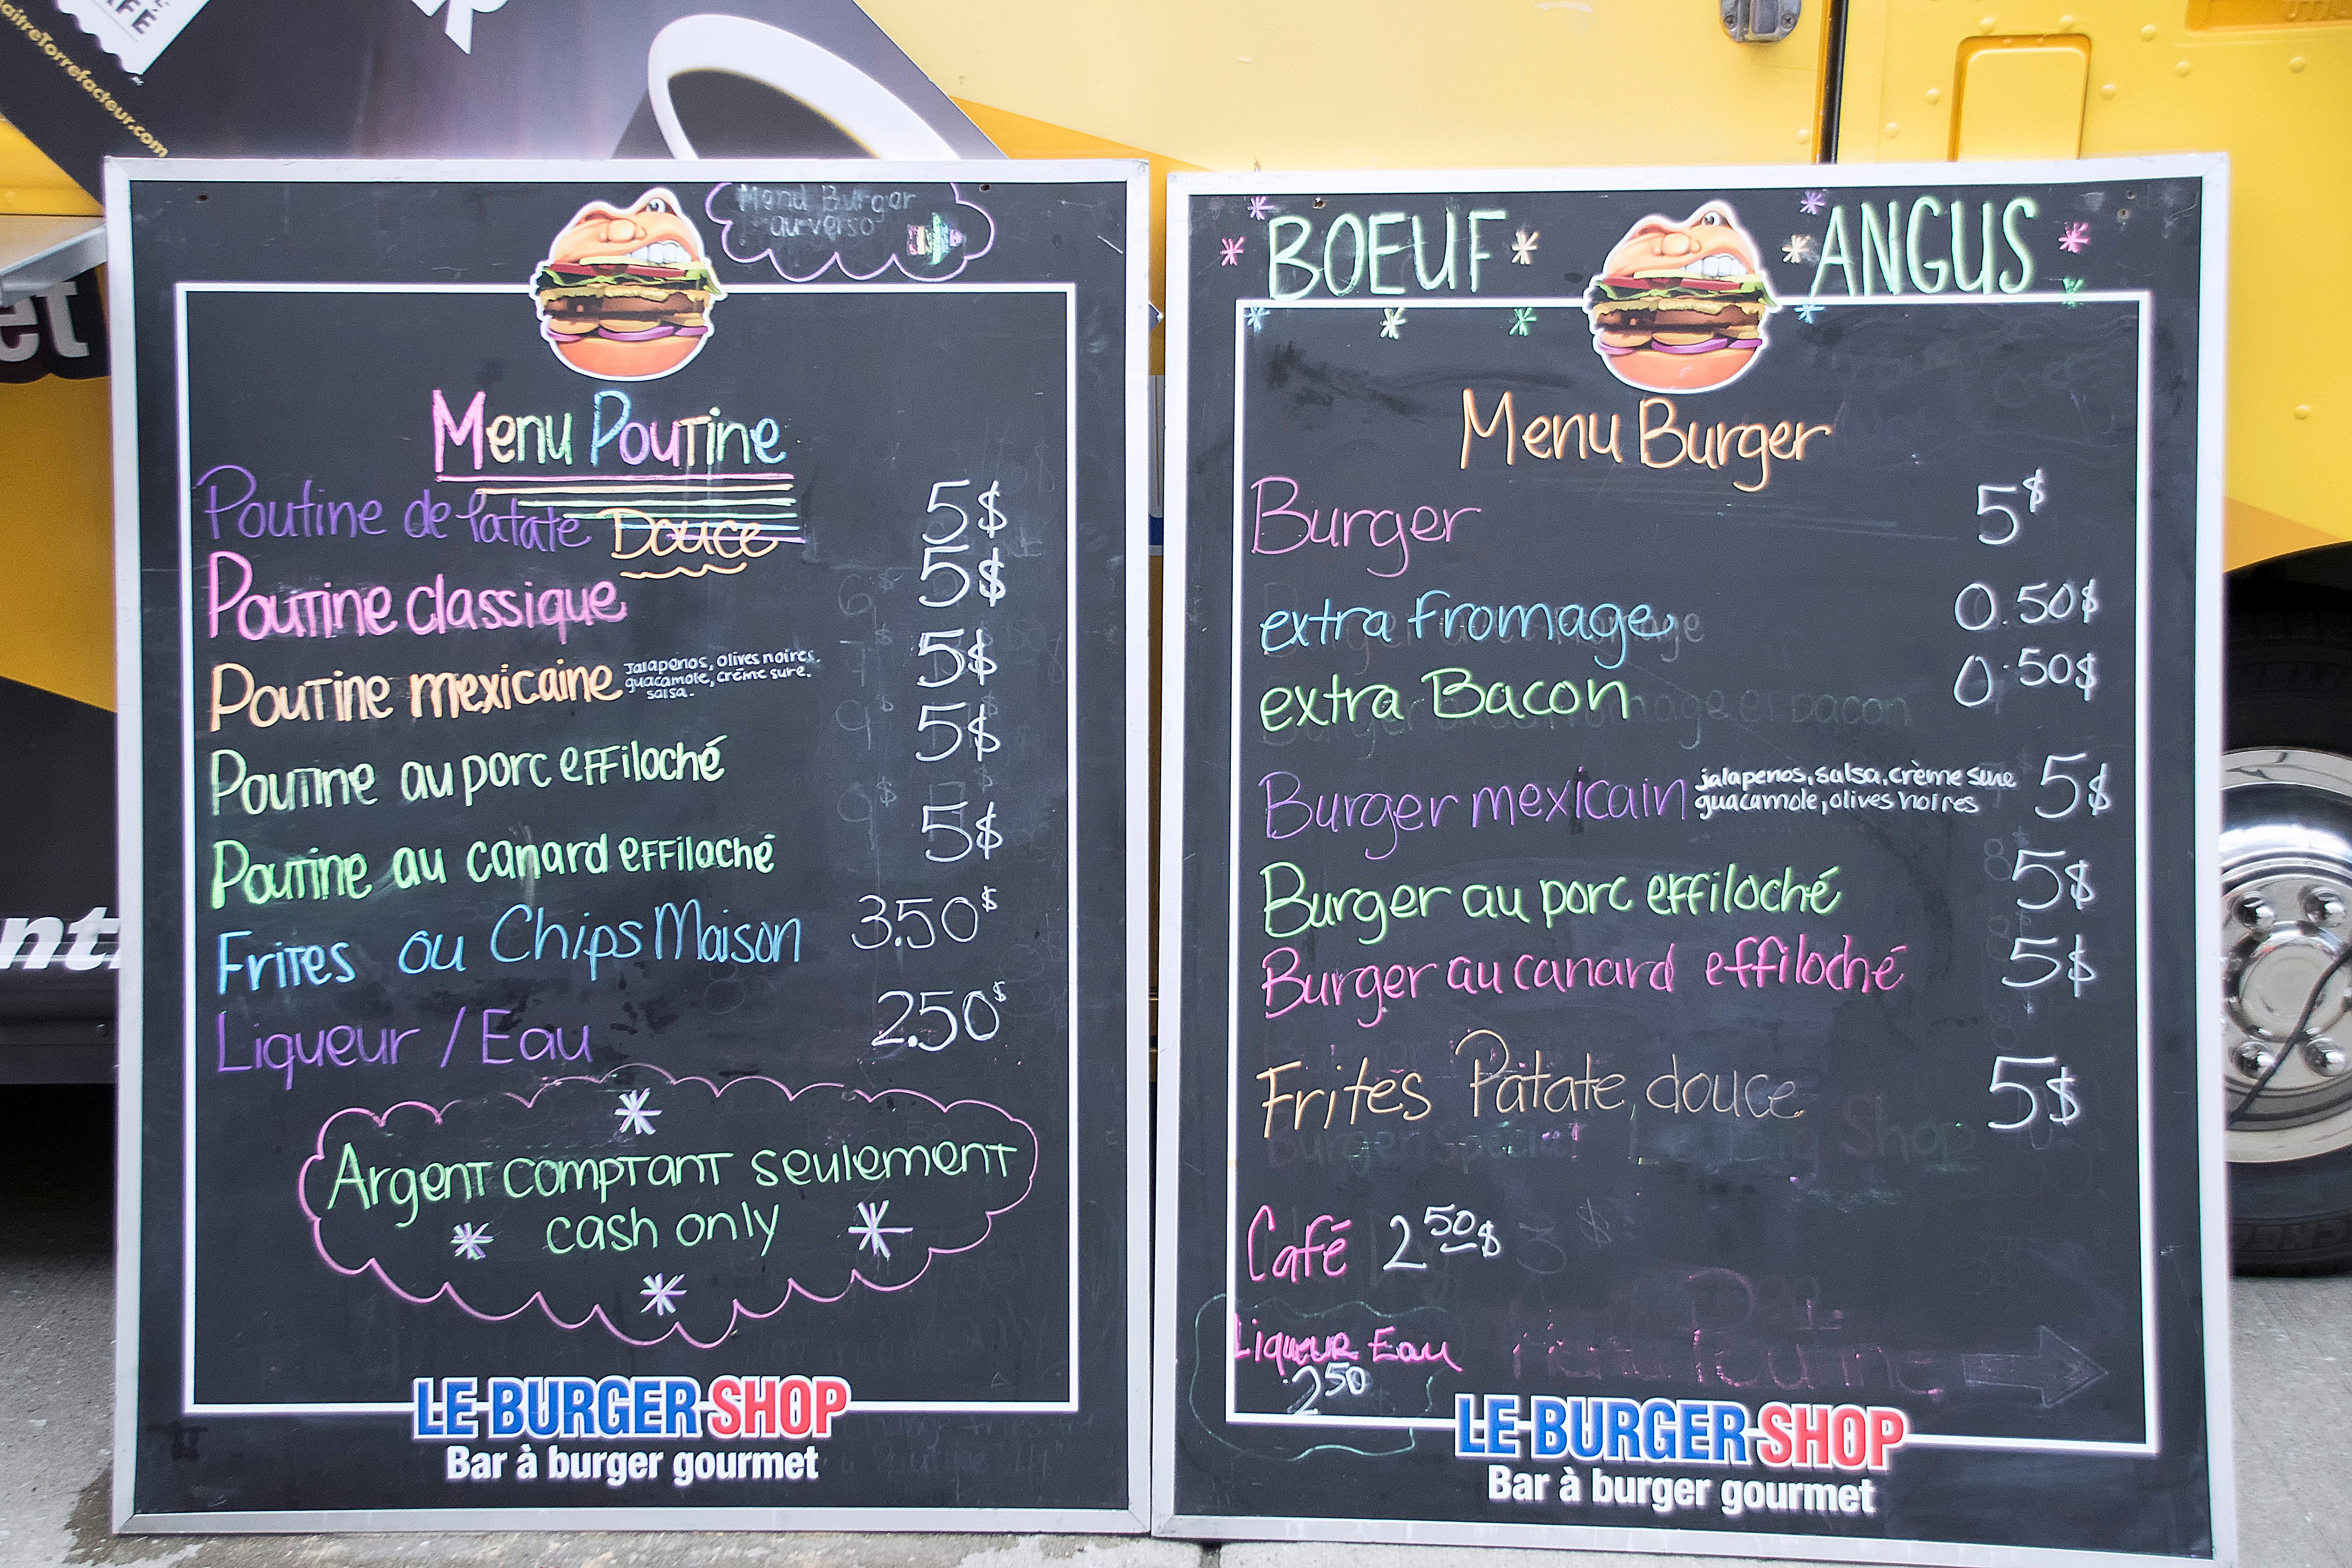 FÉ
MaitreTorrefacteur.com
et
nt
Menu Burger
au verso
Menu Poutine
Poutine de patate Douce 5$
Poutine classique 5$
Poutine mexicaine 5$
Jalapenos, olives noires,
guacamole, crème sure,
salsa.
Poutine au porc effiloché 5$
Poutine au canard effiloché 5$
Frites ou Chips Maison 3.50$
Liqueur / Eau 2.50$
Argent comptant seulement
cash only
LE BURGER SHOP
Bar à burger gourmet
BOEUF ANGUS
Menu Burger
Burger 5$
extra fromage 0.50$
extra Bacon 0.50$
Burger mexicain 5$
jalapenos, salsa, crème sure
guacamole, olives noires
Burger au porc effiloché 5$
Burger au canard effiloché 5$
Frites Patate douce 5$
Café 2 50$
Liqueur Eau
2 50
Menu Poutine
LE BURGER SHOP
Bar à burger gourmet